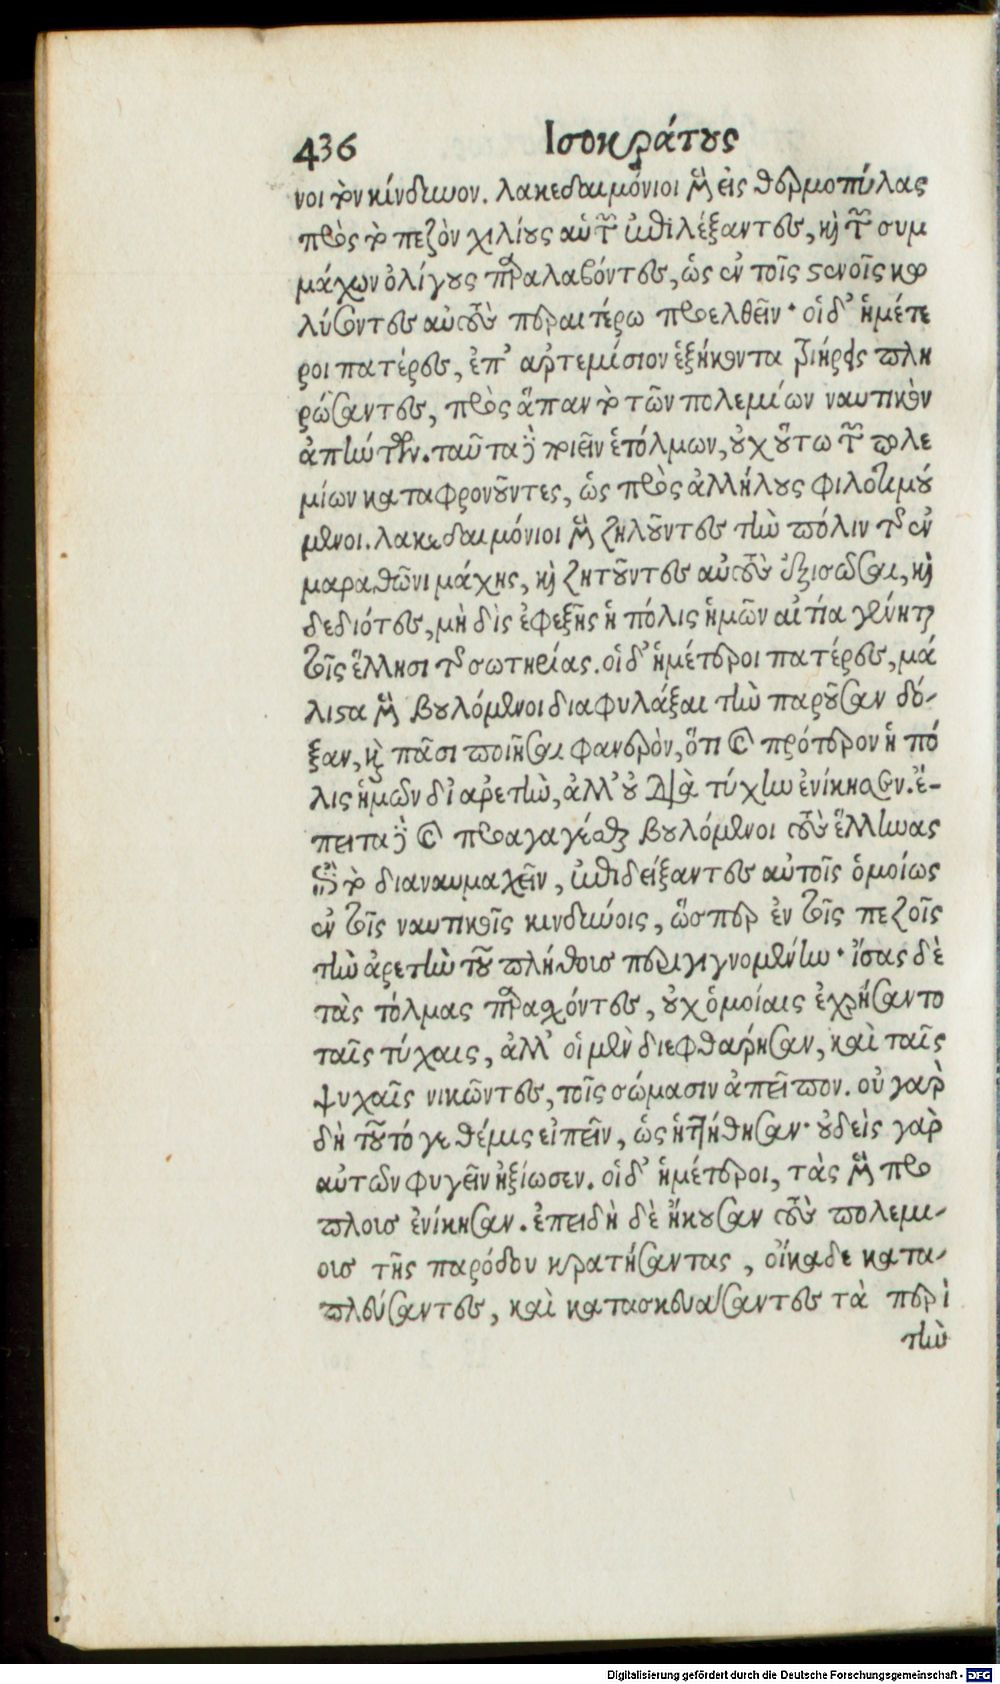 436 Ισοκράτους
νοι τὸν κίνδυνον. λακεδαιμόνιοι μὲν εἰς θερμοπύλας
πρὸς τὸ πεζὸν χιλίους αὑτῶν ἐπιλέξαντες, καὶ τῶν συμ
μάχων ὀλίγους παραλαβόντες, ὡς ἐν τοῖς στενοῖς κω
λύσοντες αὐτοὺς περαιτέρω προελθεῖν· οἱ δ' ἡμέτε
ροι πατέρες, ἐπ' ἀρτεμίσιον ἑξήκοντα τριήρεις πλη
ρώσαντες, πρὸς ἅπαν τὸ τῶν πολεμίων ναυτικὸν
ἀπήντων. ταῦτα δὲ ποιεῖν ἐτόλμων, οὐχ οὕτω τῶν πολε
μίων καταφρονοῦντες, ὡς πρὸς ἀλλήλους φιλοτιμού
μενοι. λακεδαιμόνιοι μὲν ζηλοῦντες τὴν πόλιν τῆς ἐν
μαραθῶνι μάχης, καὶ ζητοῦντες αὑτοὺς ἐξισῶσαι, καὶ
δεδιότες, μὴ δὶς ἐφεξῆς ἡ πόλις ἡμῶν αἰτία γένηται
τοῖς ἕλλησι τῆς σωτηρίας. οἱ δ' ἡμέτεροι πατέρες, μά
λιστα μὲν βουλόμενοι διαφυλάξαι τὴν παροῦσαν δό-
ξαν, καὶ πᾶσι ποιῆσαι φανερὸν, ὅτι καὶ πρότερον ἡ πό
λις ἡμῶν δι' ἀρετὴν, ἀλλ' οὐ διὰ τύχην ἐνίκησεν. ἔ-
πειτα δὲ καὶ προαγαγέσθαι βουλόμενοι τοὺς ἕλληνας
ἐπὶ τὸ διαναυμαχεῖν, ἐπιδείξαντες αὐτοῖς ὁμοίως
ἐν τοῖς ναυτικοῖς κινδύνοις, ὥσπερ ἐν τοῖς πεζοῖς
τὴν ἀρετὴν τοῦ πλήθους περιγιγνομένην· ἴσας δὲ
τὰς τόλμας παρασχόντες, οὐχ ὁμοίαις ἐχρήσαντο
ταῖς τύχαις, ἀλλ' οἱ μὲν διεφθάρησαν, καὶ ταῖς
ψυχαῖς νικῶντες, τοῖς σώμασιν ἀπεῖπον. οὐ γὰρ
δὴ τοῦτό γε θέμις εἰπεῖν, ὡς ἡττήθησαν· οὐδεὶς γὰρ
αὐτῶν φυγεῖν ἠξίωσεν. οἱ δ' ἡμέτεροι, τὰς μὲν πρό
πλους ἐνίκησαν. ἐπειδὴ δὲ ἤκουσαν τοὺς πολεμί-
ους τῆς παρόδου κρατήσαντας, οἴκαδε κατα-
πλεύσαντες, καὶ κατασκευάσαντες τὰ περὶ
τὴν
Digitalisierung gefördert durch die Deutsche Forschungsgemeinschaft - DFG